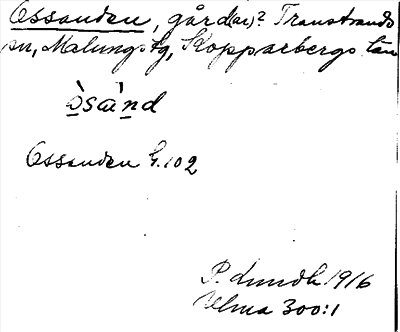 Ossanden, gård(ar)? Transtrands
sn, Malungs tg, Kopparbergs län
ò̱sὰṉd
Ossanden G. 102
P. Lindh 1916
Ulma 300:1